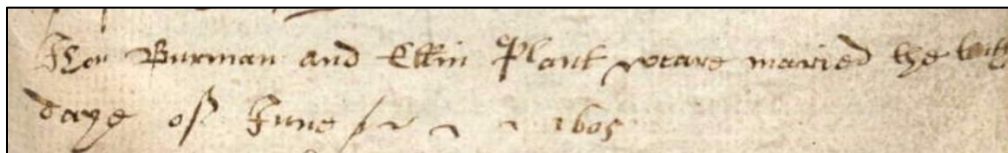 Burman and Ellin Plant weare maried the
daye of June 1605